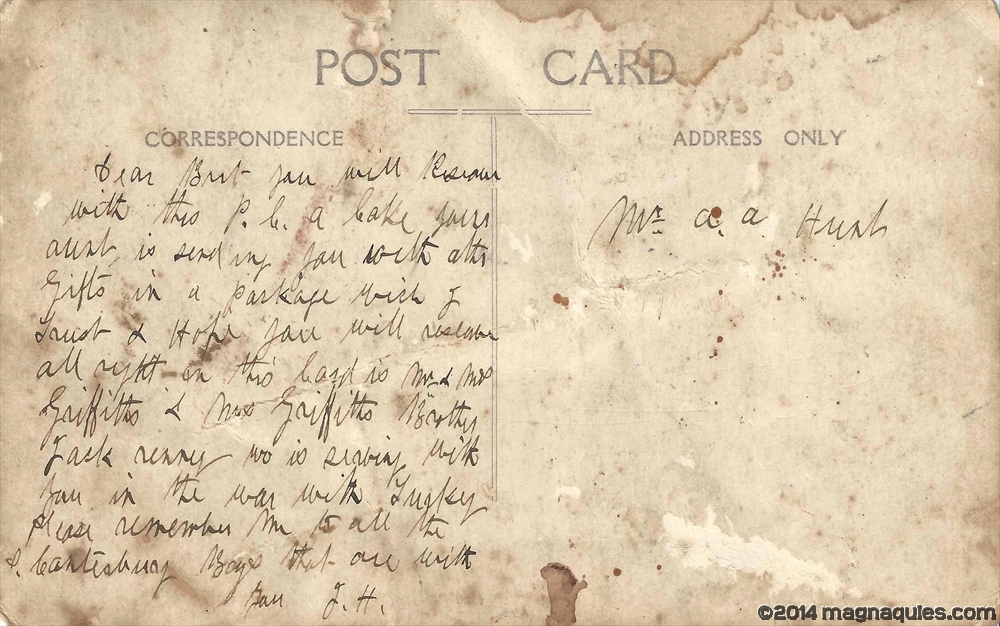 POST CARD
CORRESPONDENCE
ADDRESS ONLY
Dear Burt you will Reseave
with this P.C. a Cake your
aunt is sending you with other
Gifts in a package wich I
trust & Hope you will reseave
all right on this Card is Mr & Mrs
Griffiths & Mrs Griffiths Brother
Jack renny wo is serving with
you in the war with Turkey
please remember me to all the
S. Cantesbury Boys that are with
you J.H.
Mr. a. a Hunt
©2014 magnaquies.com